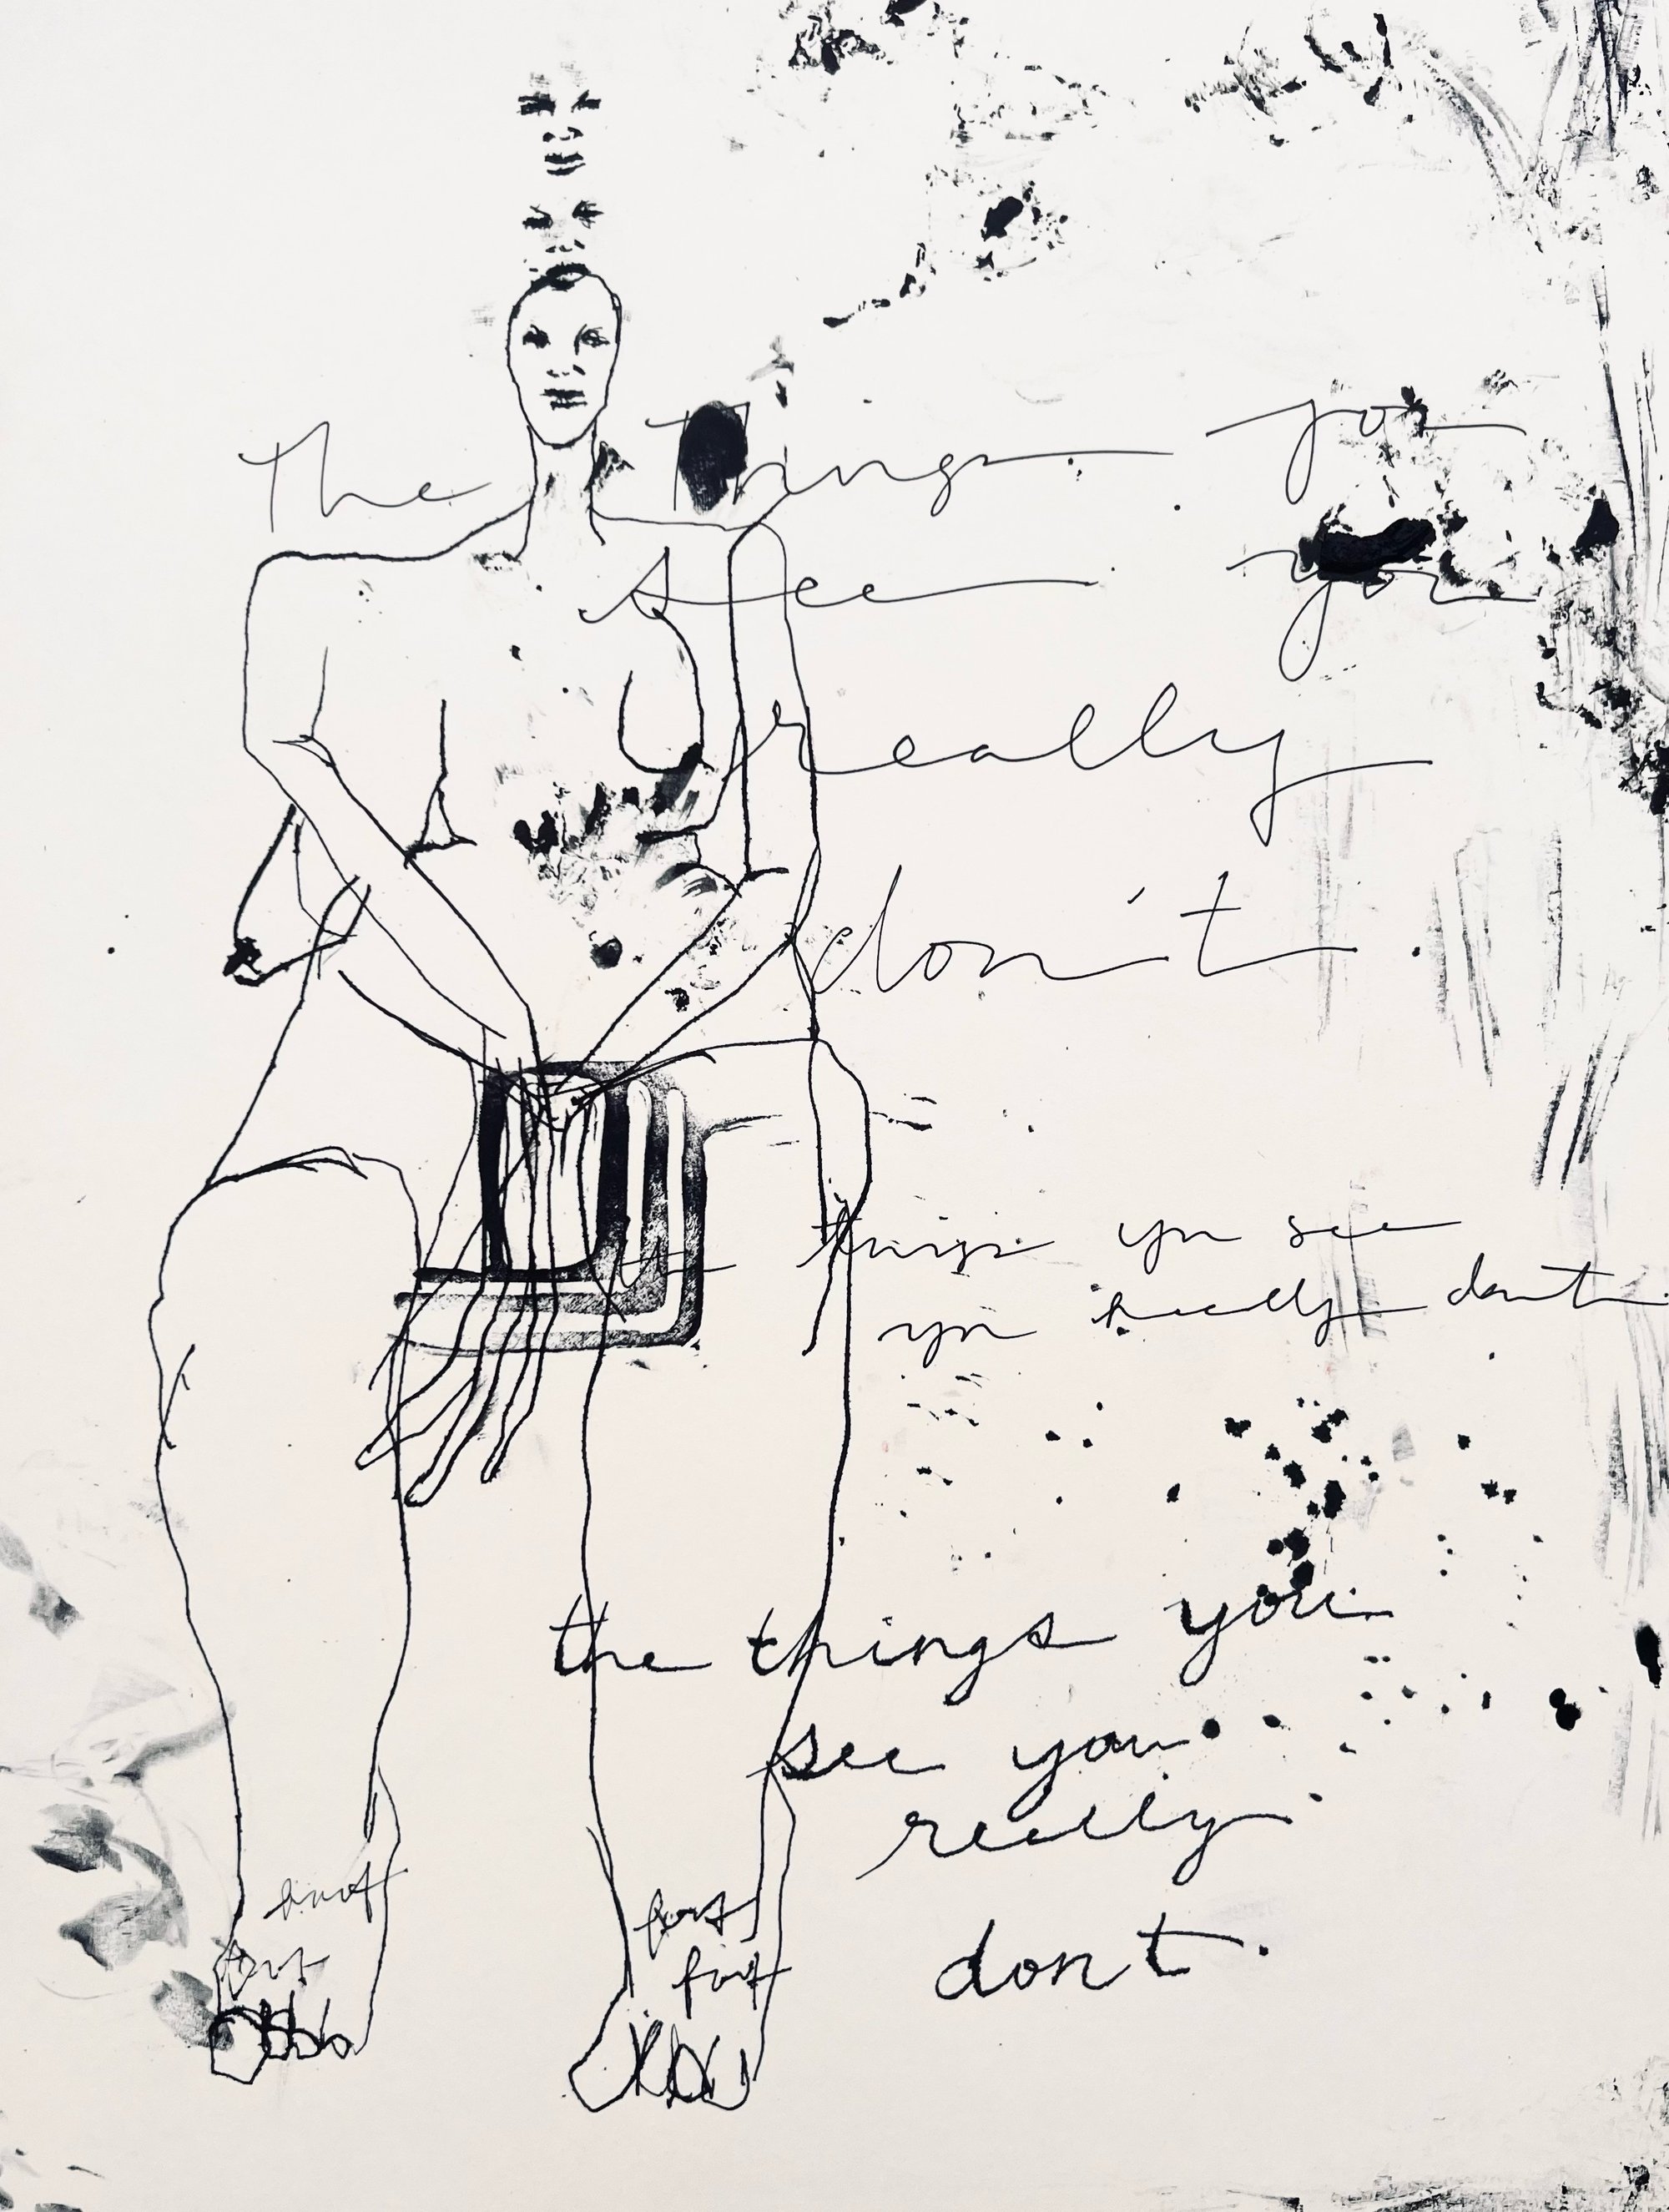 The things you
see you
really
don't
things you see
you really dont
the things you
see you
really
dont.
foot
foot
foot
foot